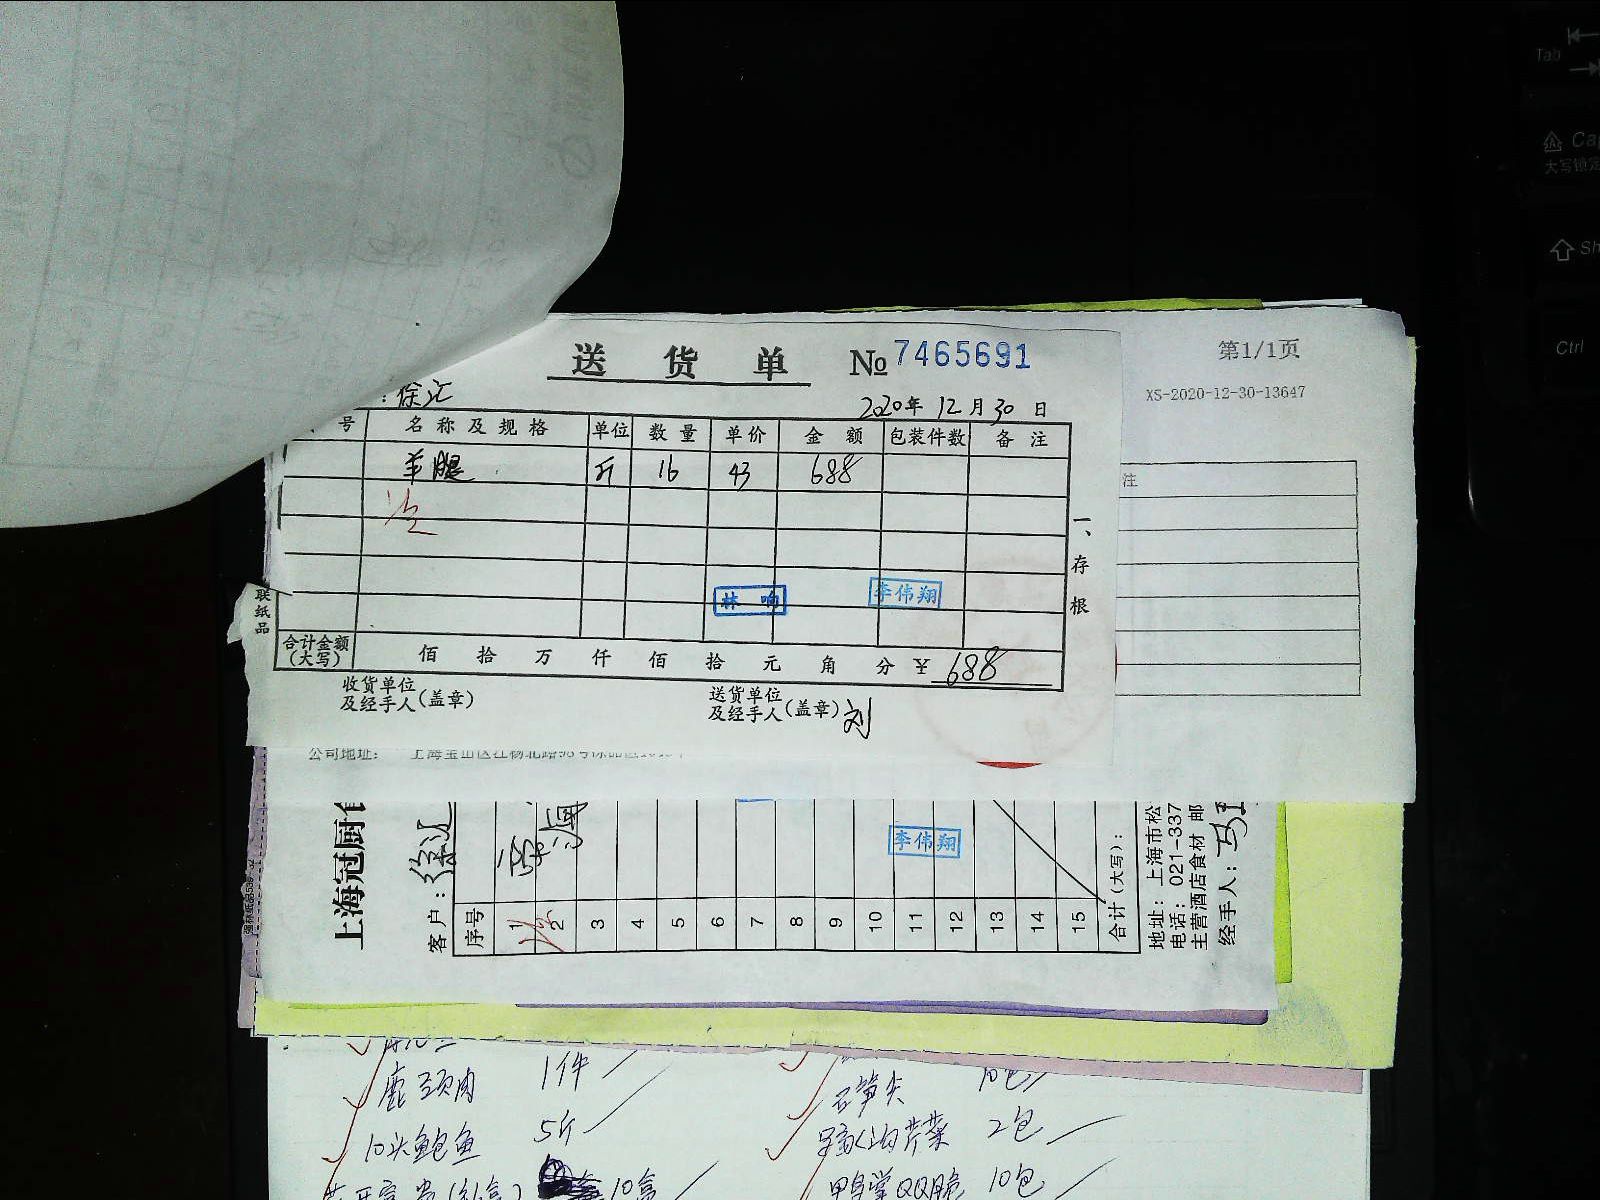 送 货 单 №7465691
第1/1页
XS-2020-12-30-13647
：徐汇
2020年 12月 30日
号 名称及规格 单位 数量 单价 金额 包装件数 备注
羊腿 斤 16 43 688
注
一、存根
林 响 李伟翔
联纸品
合计金额(大写) 佰 拾 万 仟 佰 拾 元 角 分 ¥ 688
收货单位及经手人(盖章)
送货单位及经手人(盖章) 刘
公司地址：
上海冠厨
客户：徐汇
序号 1 2 3 4 5 6 7 8 9 10 11 12 13 14 15
李伟翔
合计(大写)：
地址：上海市松
电话：021-337
主营酒店食材 邮
经手人：
鹿颈肉 1件
10头鲍鱼 5斤
10盒
石笋尖 10包
2包
鸭掌QQ脆 10包
Tab
Cap
大写锁定
Sh
Ctrl